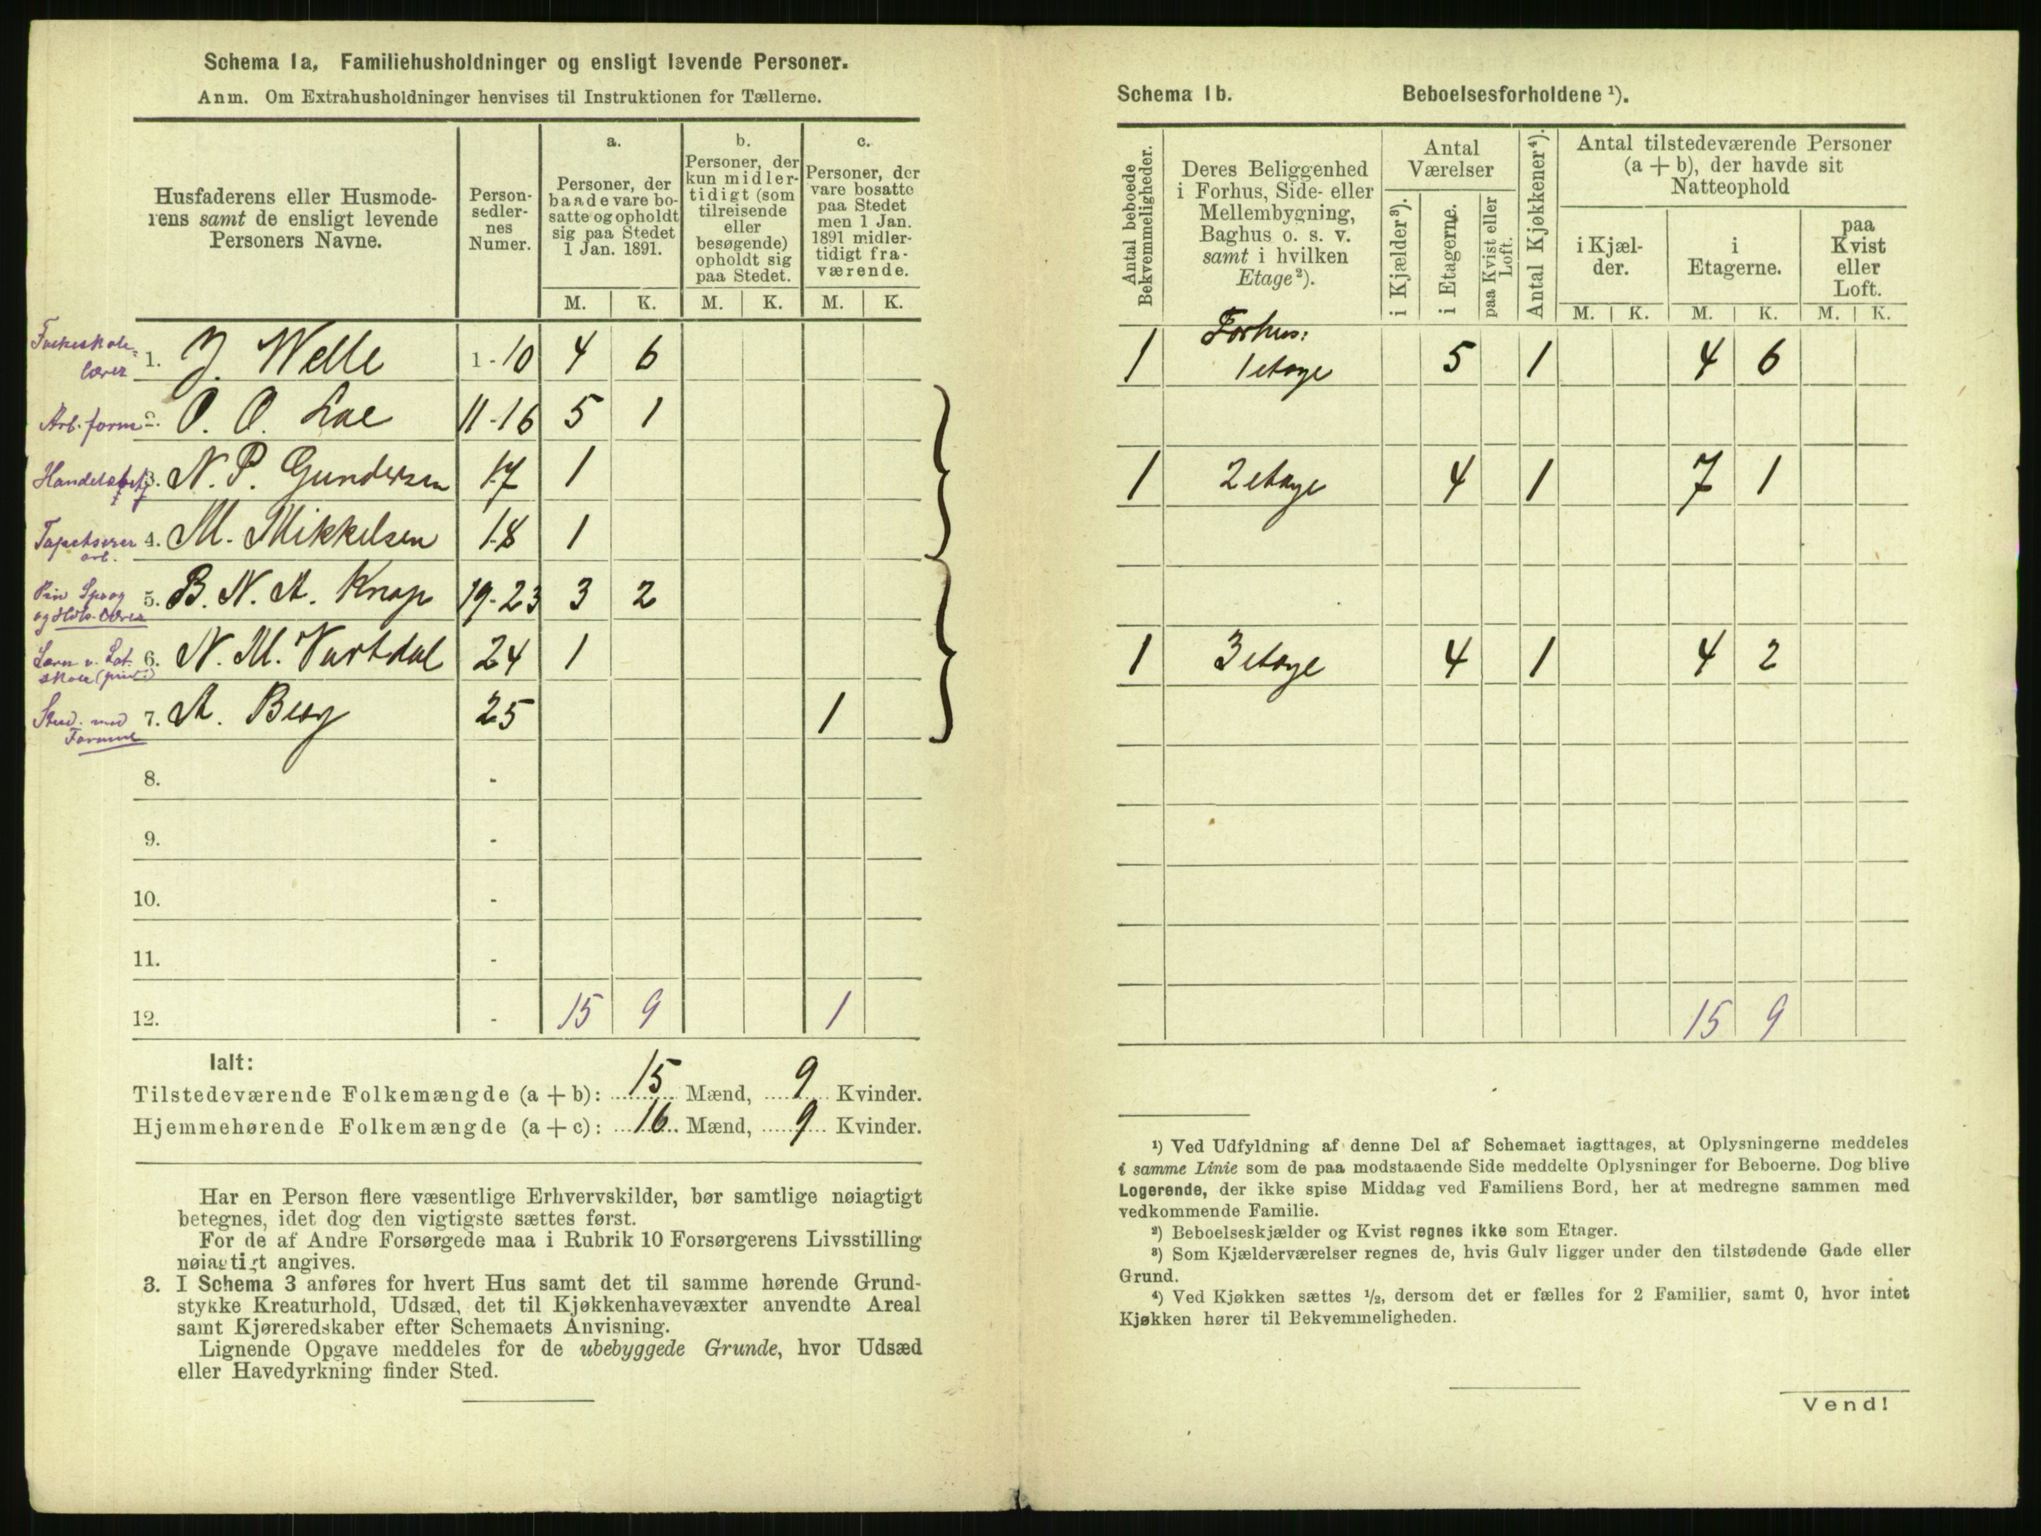 Schema 1a, Familiehusholdninger og ensligt levende Personer.
Anm. Om Extrahusholdninger henvises til Instruktionen for Tællerne.
Husfaderens eller Husmode-
rens samt de ensligt levende
Personers Navne.
Person-
sedler-
nes
Numer.
a.
Personer, der
baade vare bo-
satte og opholdt
sig paa Stedet
1 Jan. 1891.
b.
Personer, der
kun midler-
tidigt (som
tilreisende
eller
besøgende)
opholdt sig
paa Stedet.
c.
Personer, der
vare bosatte
paa Stedet
men 1 Jan.
1891 midler-
tidigt fra-
værende.
M. K. M. K. M. K.
1. J. Welle 1-10 4 6
Arb.form 2. O. O. Loe 11-16 5 1
3. N. P. Gundersen 17 1
Tapetserer
arb.
4. M. Mikkelsen 18 1
5. B. N. A. Knap 19-23 3 2
6. N. M. Vartdal 24 1
Stud. med
7. A. Berg 25 1
8. -
9. -
10. -
11. -
12. - 15 9 1
Ialt:
Tilstedeværende Folkemængde (a + b): 15 Mænd, 9 Kvinder.
Hjemmehørende Folkemængde (a + c): 16 Mænd, 9 Kvinder.
Har en Person flere væsentlige Erhvervskilder, bør samtlige nøiagtigt
betegnes, idet dog den vigtigste sættes først.
For de af Andre Forsørgede maa i Rubrik 10 Forsørgerens Livsstilling
nøiagtigt angives.
3. I Schema 3 anføres for hvert Hus samt det til samme hørende Grund-
stykke Kreaturhold, Udsæd, det til Kjøkkenhavevæxter anvendte Areal
samt Kjøreredskaber efter Schemaets Anvisning.
Lignende Opgave meddeles for de ubebyggede Grunde, hvor Udsæd
eller Havedyrkning finder Sted.
Schema 1b. Beboelsesforholdene ¹).
Antal beboede
Bekvemmeligheder.
Deres Beliggenhed
i Forhus, Side- eller
Mellembygning,
Baghus o. s. v.
samt i hvilken
Etage ²).
Antal
Værelser
i Kjælder ³).
i Etagerne.
paa Kvist eller
Loft.
Antal Kjøkkener ⁴).
Antal tilstedeværende Personer
(a + b), der havde sit
Natteophold
i Kjæl-
der.
i
Etagerne.
paa
Kvist
eller
Loft.
M. K. M. K. M. K.
Forhus:
1 1 etage 5 1 4 6
1 2 etage 4 1 7 1
1 3 etage 4 1 4 2
15 9
¹) Ved Udfyldning af denne Del af Schemaet iagttages, at Oplysningerne meddeles
i samme Linie som de paa modstaaende Side meddelte Oplysninger for Beboerne. Dog blive
Logerende, der ikke spise Middag ved Familiens Bord, her at medregne sammen med
vedkommende Familie.
²) Beboelseskjælder og Kvist regnes ikke som Etager.
³) Som Kjælderværelser regnes de, hvis Gulv ligger under den tilstødende Gade eller
Grund.
⁴) Ved Kjøkken sættes ½, dersom det er fælles for 2 Familier, samt 0, hvor intet
Kjøkken hører til Bekvemmeligheden.
Vend!